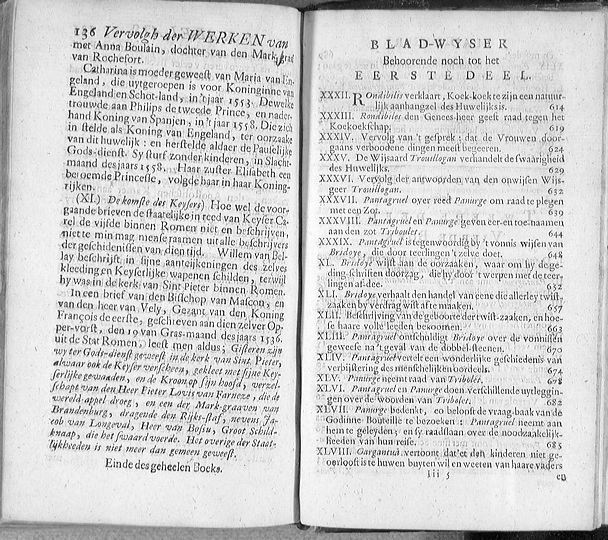 136 Vervolgh der WERKEN van
met Anna Boulain, dochter van den Mark-graf
van Rochefort.
Catharina is moeder geweest van Maria van En-
geland, die uytgeroepen is voor Koninginne van
Engeland en Schot-land, in 't jaar 1553. Dewelke
trouwde aan Philips de tweede Prince, en nader-
hand Koning van Spanjen, in 't jaar 1558. Die zich
in stelde als Koning van Engeland, ter oorzaake
van dit huwelijk: en herstelde aldaer de Pauselijke
Gods-dienst. Sy sturf zonder kinderen, in Slacht-
maand des jaars 1558. Haar zuster Elisabeth een
beroemde Princesse, volgde haar in haar Koning-
rijken.
(XI.) De komste des Keysers) Hoe wel de voor-
gaande brieven de staatelijke in treed van Keyser Ca-
rel de vijfde binnen Romen niet en beschrijven,
niet te min mag mense raamen uit alle beschrijvers
der geschidenissen van dien tijd. Willem van Bel-
lay beschrijft in sijne aanteijkeningen des zelves
kleeding en Keyserlijke wapenen schilden, terwijl
hy was in de kerk van Sint Pieter binnen Romen.
In een brief van den Bisschop van Mascon, en
van den heer van Vely, Gezant van den Koning
François de eerste, geschreven aan dien zelver Op-
per-vorst, den 19 van Gras-maand des jaars 1536.
uit de Stat Romen, leest men aldus; Gisteren zijn
wy ter Gods-dienst geweest in de kerk van Sint Pieter,
alwaar ook de Keyser verscheen, gekleet met sijne Key-
serlijke gewaaden, en de Kroon op sijn hoofd, verzel-
schapt van den Heer Pieter Louis van Farneze, die de
wereld-appel droeg, en een der Mark-graaven van
Brandenburg, dragende den Rijks-staf, nevens Ja-
cob van Longeval, Heer van Bosu, Groot Schild-
knaap, die het swaard voerde. Het overige der Staat-
lijkheeden is niet meer dan gemeen geweest.
Einde des geheelen Boeks.
BLAD-WYSER
Behoorende noch tot het
EERSTE DEEL.
XXXII. Rondibilis verklaart, Koek-koek te zijn een natuur-
lijk aanhangzel des Huwelijks is. 614
XXXIII. Rondibiles den Genees-heer geest raad tegen het
Koekoekschap. 619
XXXIV. Vervolg van 't gesprek: dat de Vrouwen door-
gaans verboodene dingen meest begeeren. 624
XXXV. De Wijsaard Trouillogan verhandelt de swaarigheid
des Huwelijks. 629
XXXVI. Vervolg der antwoorden van den onwijsen Wijs-
geer Trouillogan. 632
XXXVII. Pantagruel over reed Panurge om raad te plegen
met een Zot. 639
XXXVIII. Pantagruel en Panurge geven eer-en toe-naamen
aan den zot Tribouler. 644
XXXIX. Pantagruel is tegenwoordig by 't vonnis wijsen van
Bridoye, die door teerlingen 't zelve doet. 648
XL. Bridoye wijst aan de oorzaaken, waar om hy de ge-
ding-schriften doorzag, die hy door 't werpen met de teer-
lingen af dee. 652
XLI. Bridoye verhaalt den handel van eene die allerley twist-
zaaken by verdrag wist af te maaken. 657
XLII. Beschrijving van de geboorte der twist-zaaken, en hoe-
se haare volle leeden bekoomen. 663
XLIII. Pantagruel ontschuldigt Bridoye over de vonnissen
geweese na 't geval van de dobbel-steenen. 670
XLIV. Pantagruel vertelt een wonderlijke geschiedenis van
verbijstering des menschelijken oordeels. 674
XLV. Panurge neemt raad van Triboles. 678
XLVI. Pantagruel en Panurge doen verschillende uytleggin-
gen over de woorden van Triboles. 682
XLVII. Panurge bedenkt, en belooft de vraag-baak van de
Godinne Bouteille te bezoeken: Pantagruel neemt aan
hem te geleyden; en sy raadslaan over de noodzaakelijk-
heeden van hun reise. 685
XLVIII. Gargantua vertoont dat'et den kinderen niet ge-
oorlooft is te huwen buyten wil en weeten van haare vaders
Iii 5 en